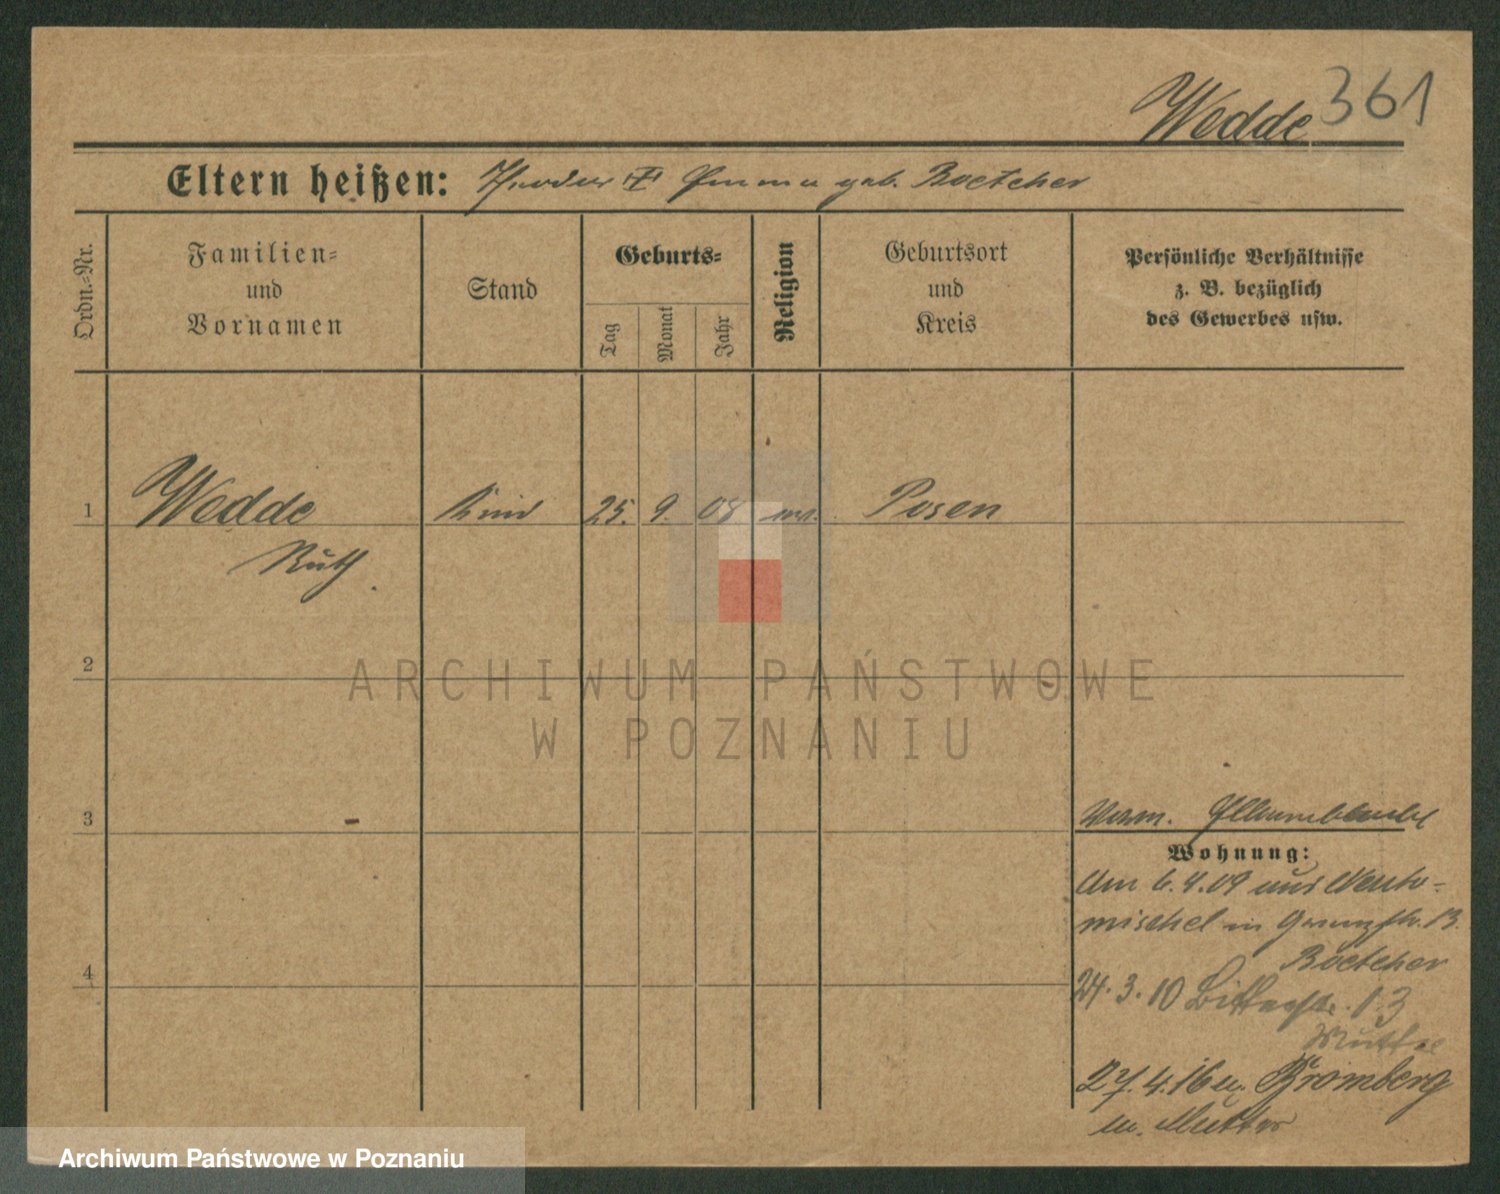 Wedde 361
Eltern heißen: Theodor Emma geb. Boetcher
Ordn.-Nr.
Familien-
und
Vornamen
Stand
Geburts-
Tag
Monat
Jahr
Religion
Geburtsort
und
Kreis
Persönliche Verhältnisse
z. B. bezüglich
des Gewerbes usw.
1 Wedde Kind 25. 9. 08 Posen
Ruth
2
ARCHIWUM PAŃSTWOWE
W POZNANIU
3
Vorm.
Wohnung:
Am 6.4.09 aus Neuto-
mischel in 13.
Boetcher
4
24.3.10 13
Mutter
27.4.16 n. Bromberg
m. Mutter
Archiwum Państwowe w Poznaniu